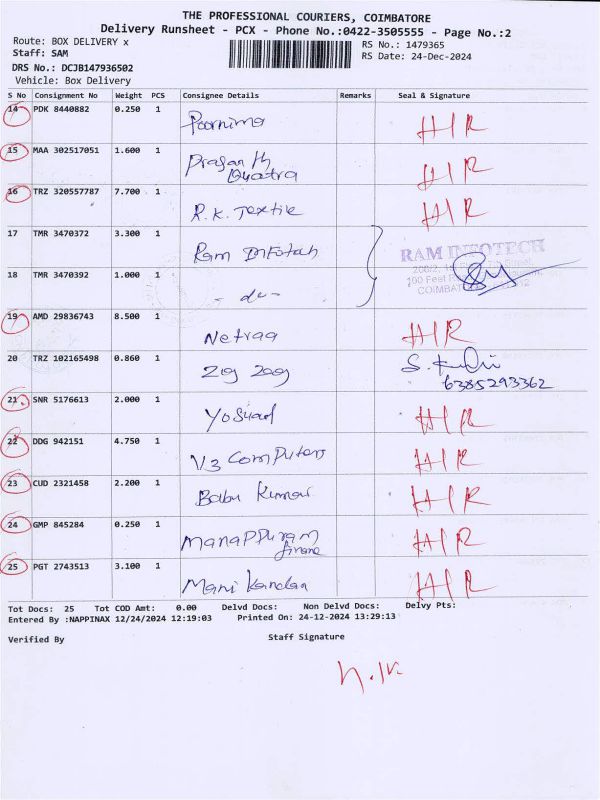 THE PROFESSIONAL COURIERS, COIMBATORE
Delivery Runsheet - PCX - Phone No.:0422-3505555 - Page No.:2
Route: BOX DELIVERY x
RS No.: 1479365
Staff: SAM
RS Date: 24-Dec-2024
DRS No.: DCJB147936502
Vehicle: Box Delivery
S No Consignment No Weight PCS Consignee Details Remarks Seal & Signature
14 PDK 8440882 0.250 1 Poornima H/R
15 MAA 302517051 1.600 1 Prasanth H/R
16 TRZ 320557787 7.700 1 R.K. Textile H/R
17 TMR 3470372 3.300 1 Ram Infotech
RAM INFOTECH
18 TMR 3470392 1.000 1 - do -
19 AMD 29836743 8.500 1 Netraa H/R
20 TRZ 102165498 0.860 1 Zig Zag
6385293362
21 SNR 5176613 2.000 1 H/R
22 DDG 942151 4.750 1 V3 Computers H/R
23 CUD 2321458 2.200 1 Babu Kumar H/R
24 GMP 845284 0.250 1 Manappuram H/R
finance
25 PGT 2743513 3.100 1 Mani Kandan H/R
Tot Docs: 25 Tot COD Amt: 0.00 Delvd Docs: Non Delvd Docs: Delvy Pts:
Entered By :NAPPINAX 12/24/2024 12:19:03 Printed On: 24-12-2024 13:29:13
Verified By Staff Signature